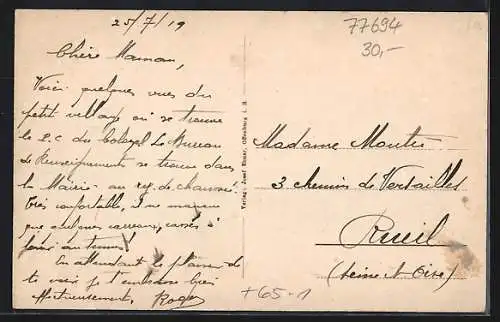 25/7/19
77694
30,-
Chère Maman,
Voici quelques vues du
petit village où se trouve
le 2.C du Colonel Le Bureau
de Renseignements se trouve dans
la Mairie - au rez de chaussée
très confortable, il ne manque
que quelques carreaux, cassés
En attendant le plaisir de
te voir je t'embrasse bien
affectueusement. Roger
Verlag: Josef Elsner, Offenburg i. B.
Madame Moutis
3 chemin de Versailles
Rueil
(Seine & Oise)
+65-1